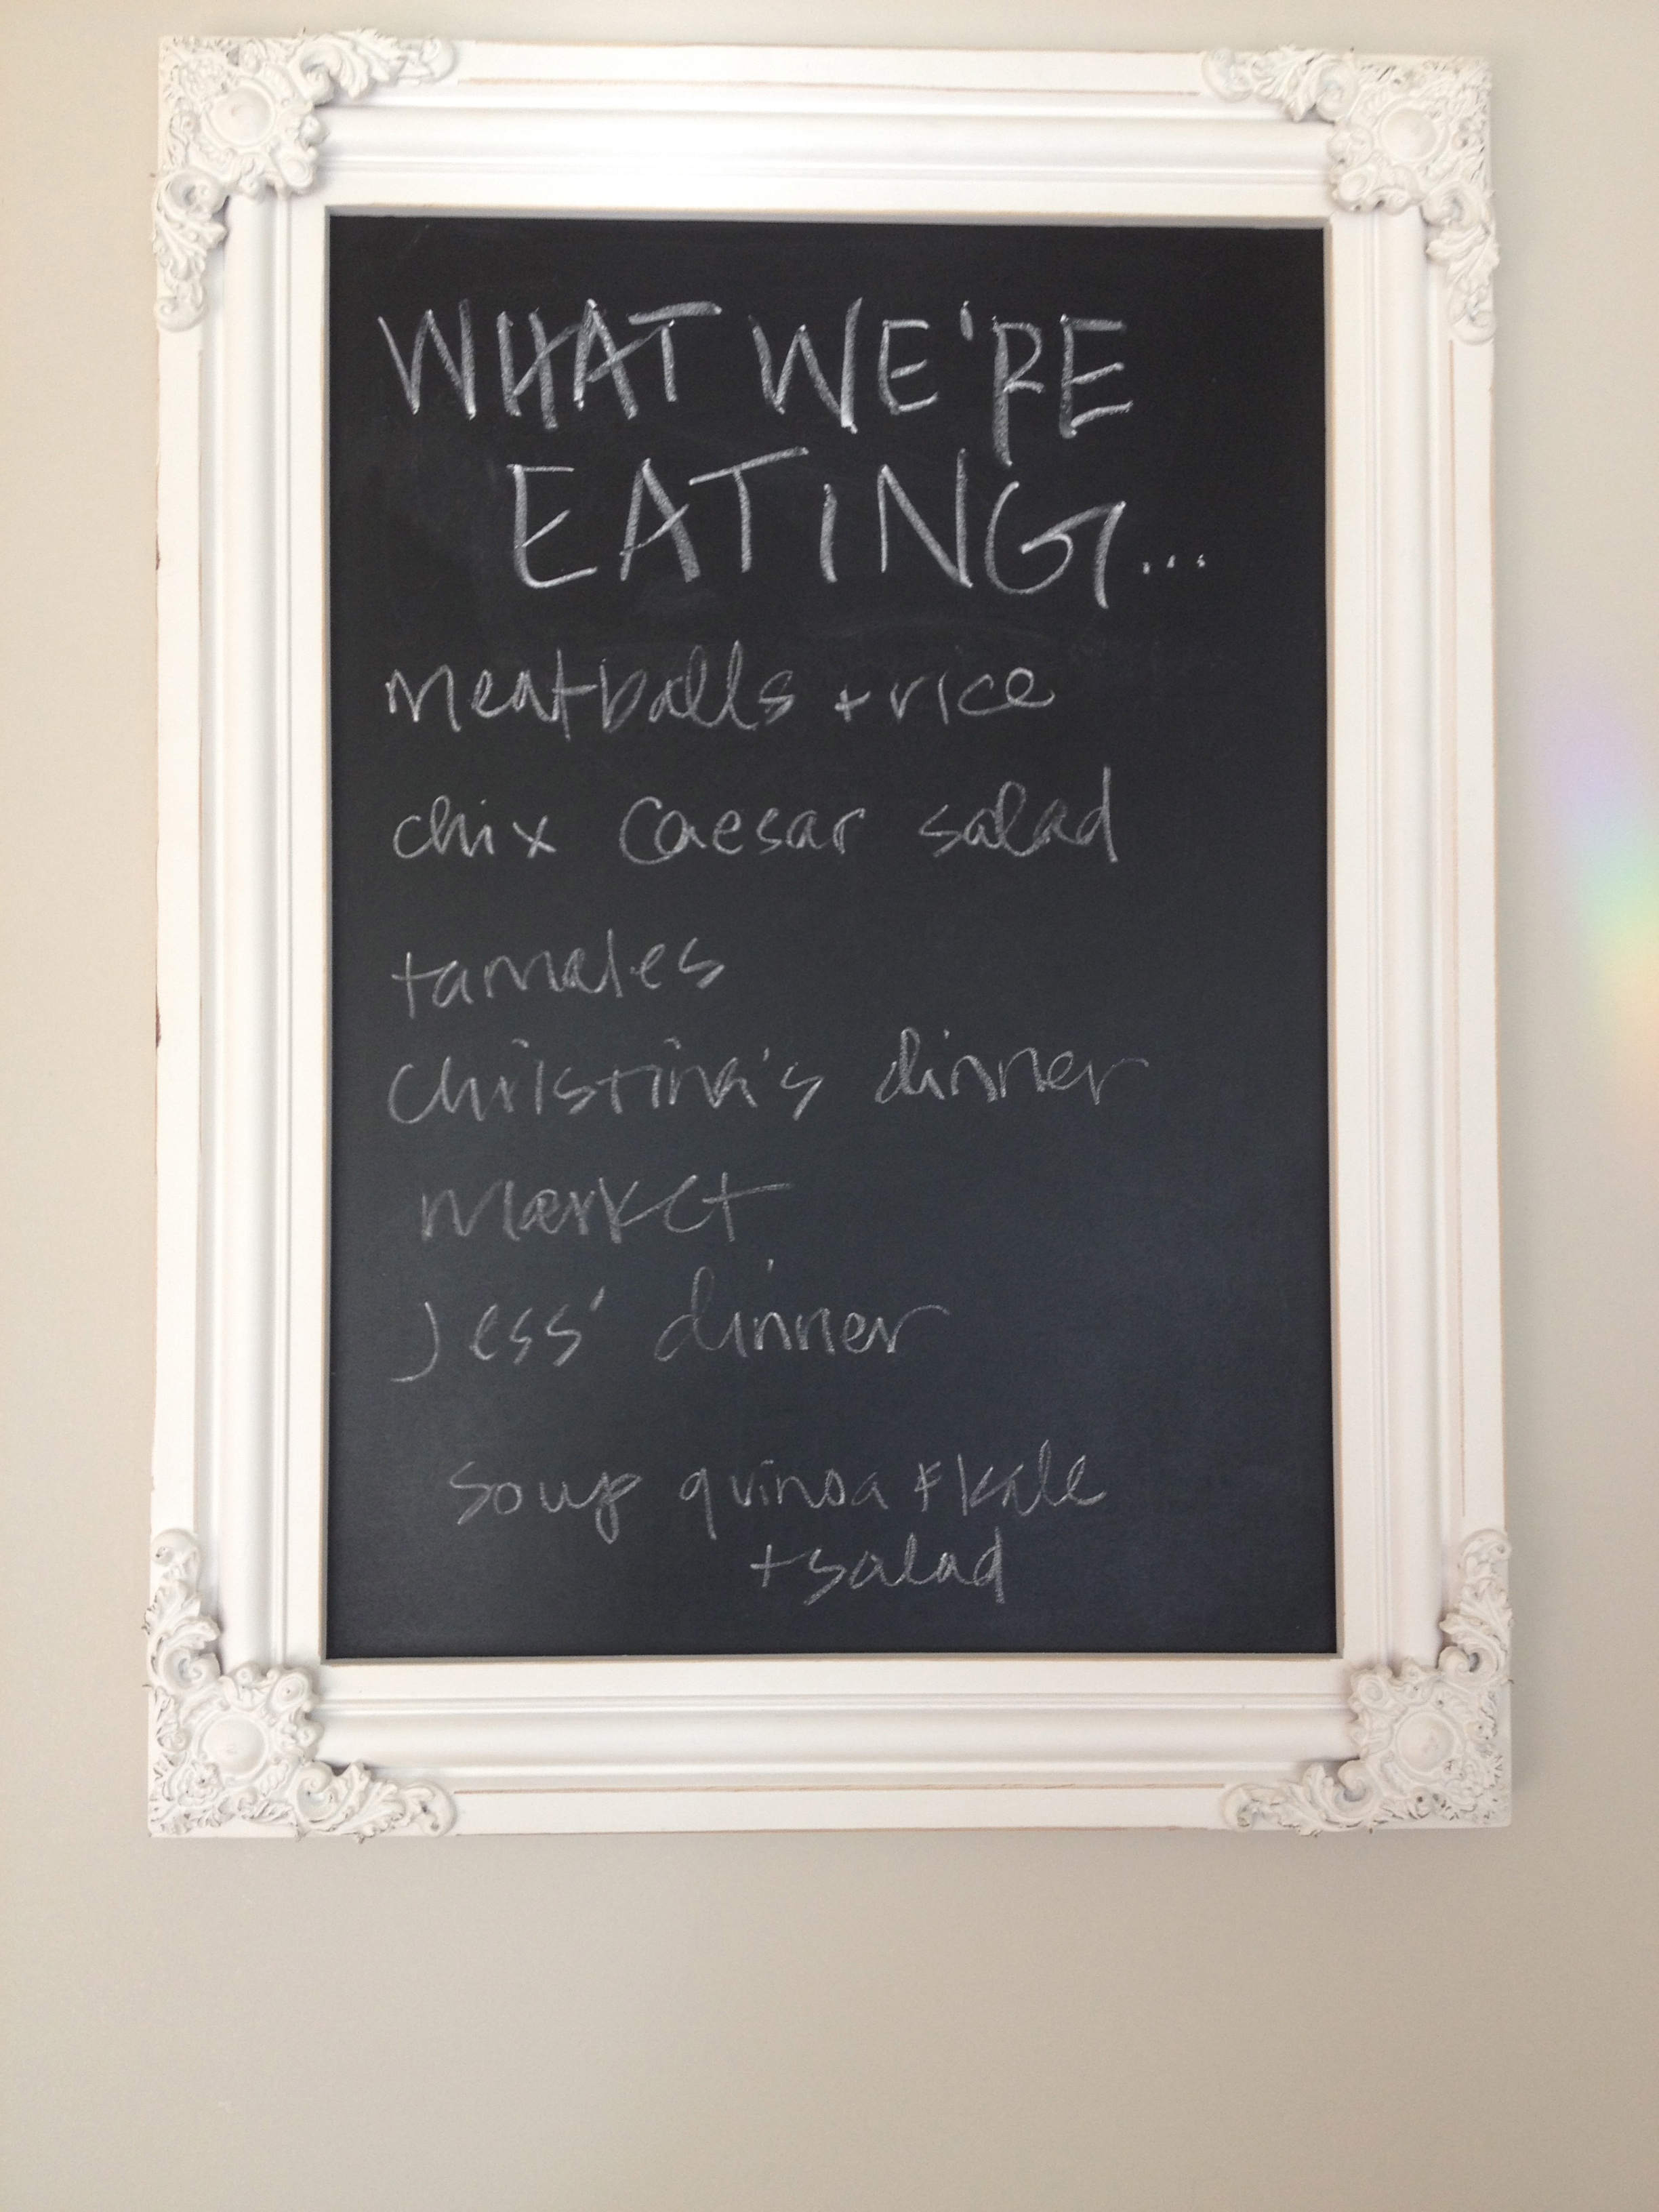 WHAT WE'RE
EATING...
meatballs + rice
chix Caesar salad
tamales
Christina's dinner
market
Jess' dinner
soup quinoa + kale
+ salad